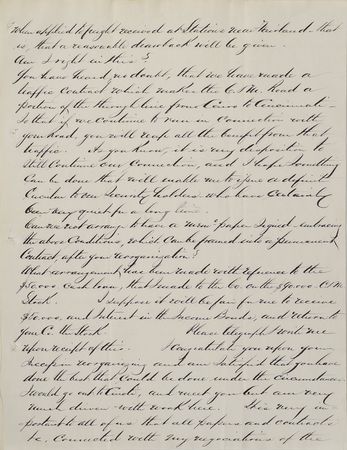 When applied to freight received at Stations near Fairland. that
is, that a reasonable drawback will be given.
Am I right in this?
You have heard, no doubt, that we have made a
traffic contract which makes the C & M. Road a
portion of the through line from Cairo to Cincinnati -
So that if we continue to run in connection with
your Road, you will reap all the benefit from that
traffic. As you know, it is my disposition to
still continue our connection, and I hope something
can be done that will enable me to issue a definite
Circular to our Security holders who have certainly
been very quiet for a long time.
Can we not arrange to have a mem° paper signed embracing
the above conditions, which can be framed into a permanent
Contract, after your reorganization?
What arrangement has been made with reference to the
cash loan, that I made to the Co. on the
Stock. I suppose it will be fair for me to receive
and Interest in the Income Bonds, and return to
you the Stock Please telegraph & write me
upon receipt of this. I congratulate you upon your
success in reorganizing and am satisfied that you have
done the best that could be done under the circumstances
I would go out to Cincti, and meet you but am very
much driven with work here. It is very im-
portant to all of us that all papers and contracts
&c, connected with my negotiations of the